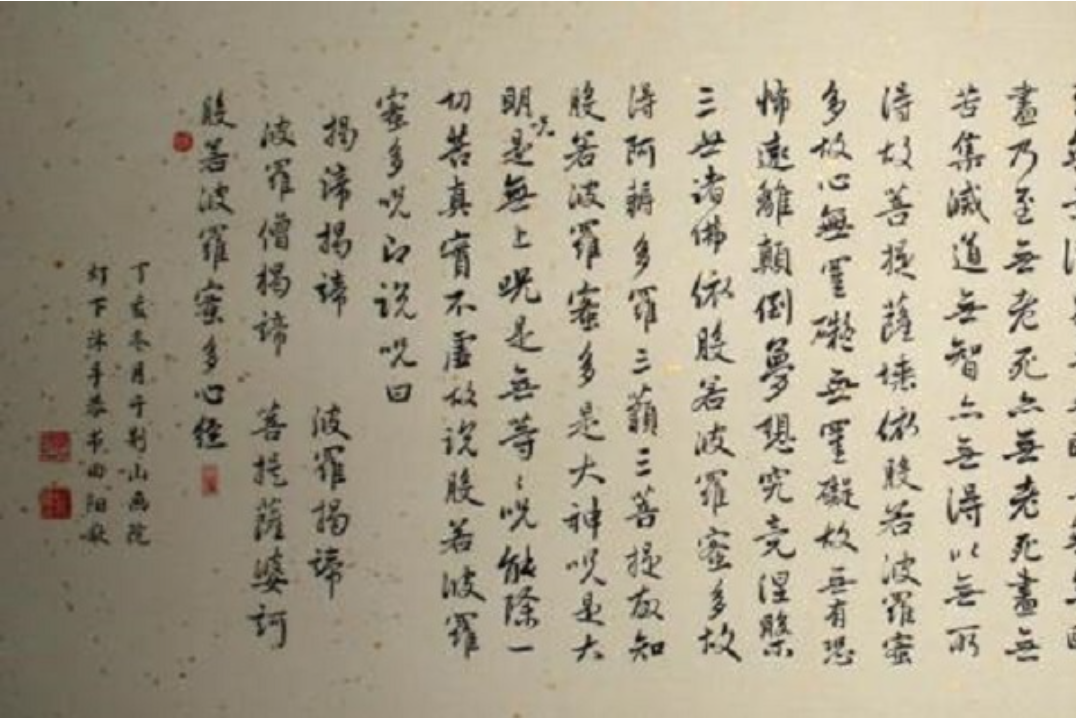 盡乃至無老死亦無老死盡無
苦集滅道無智亦無得以無所
得故菩提薩埵依般若波羅蜜
多故心無罣礙無罣礙故無有恐
怖遠離顛倒夢想究竟涅槃
三世諸佛依般若波羅蜜多故
得阿耨多羅三藐三菩提故知
般若波羅蜜多是大神呪是大
明呪是無上呪是無等々呪能除一
切苦真實不虛故說般若波羅
蜜多呪即說呪曰
揭諦揭諦 波羅揭諦
波羅僧揭諦 菩提薩婆訶
般若波羅蜜多心經
丁亥冬月于荆山画院
灯下沐手恭書曲阳